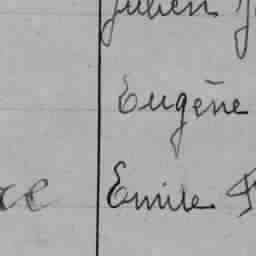 Julien
Eugène
Emile